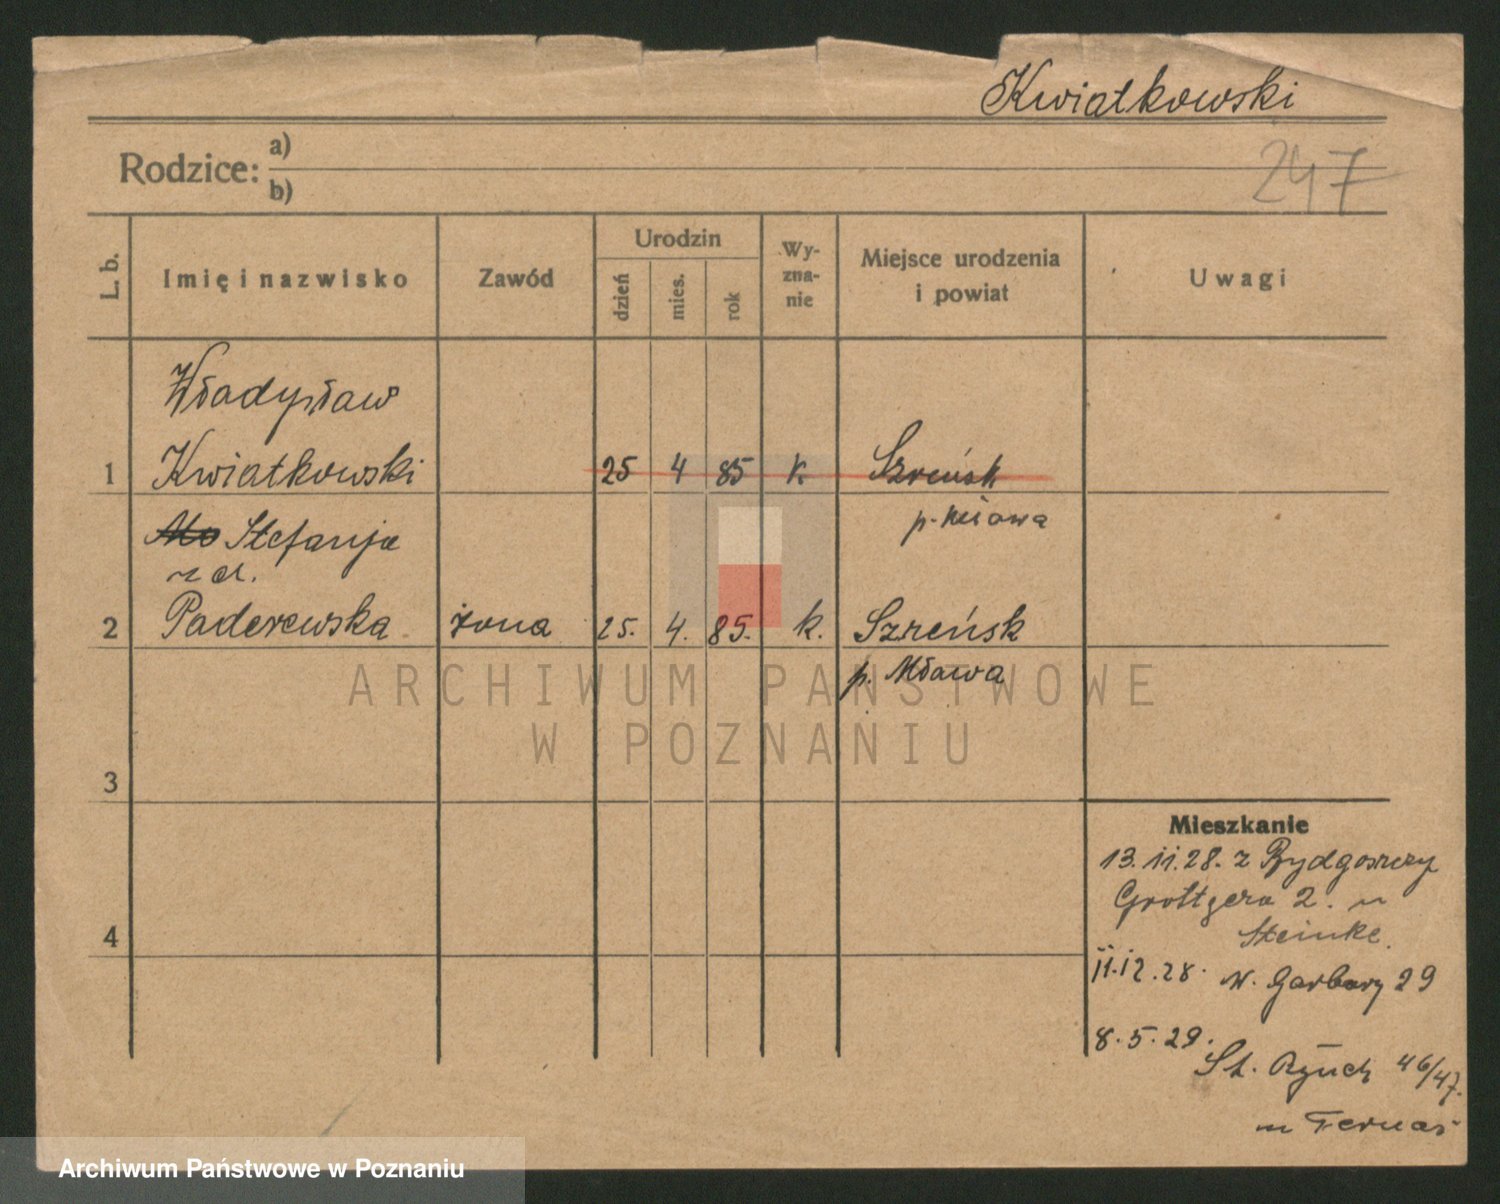 Kwiatkowski
Rodzice: a)
b)
247
L. b.
Imię i nazwisko
Zawód
Urodzin
dzień
mies.
rok
Wy-
zna-
nie
Miejsce urodzenia
i powiat
Uwagi
Władysław
1 Kwiatkowski 25 4 85 k. Szreńsk
p. Mława
Stefanja
zd.
2 Paderewska żona 25. 4. 85. k. Szreńsk
p. Mława
ARCHIWUM PAŃSTWOWE
W POZNANIU
3
4
Mieszkanie
13.11.28. z Bydgoszczy
Grottgera 2. u
Steinke.
11.12.28. W. Garbary 29
8.5.29.
St. Rynek 46/47.
u
Archiwum Państwowe w Poznaniu